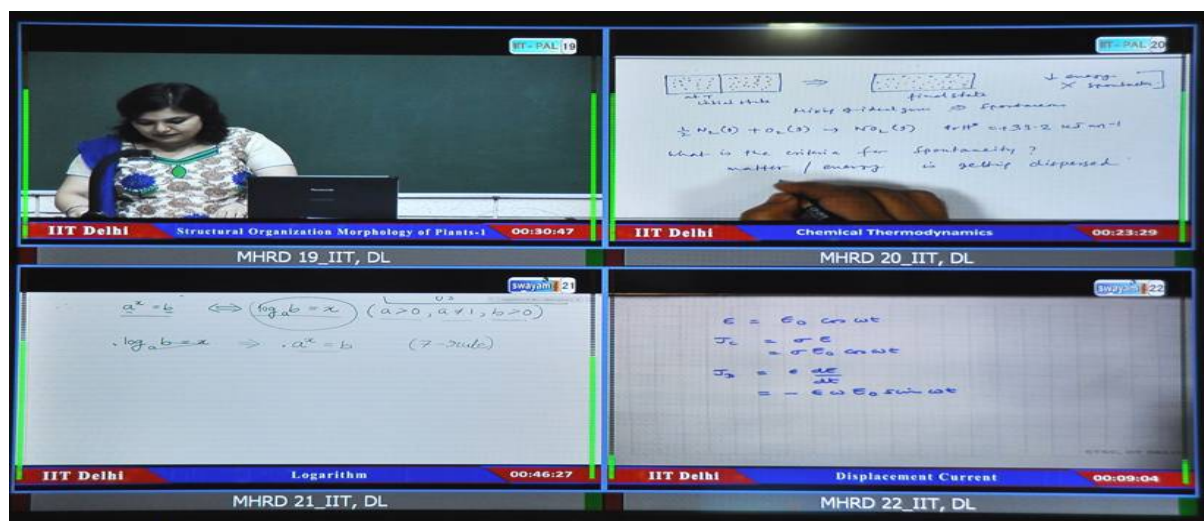 IIT-PAL 19
IIT Delhi
Structural Organization Morphology of Plants-1
00:30:47
MHRD 19_IIT, DL
IIT-PAL 20
at T
initial state
⇒
final state
↓ energy
× spontaneity
Mixing of ideal gases ⇒ Spontaneous
½ N₂(g) + O₂(g) → NO₂(g) ΔrH° = +33.2 kJ mol-1
What is the criteria for Spontaneity ?
matter / energy is getting dispersed
IIT Delhi
Chemical Thermodynamics
00:23:29
MHRD 20_IIT, DL
swayam 21
aˣ = b ⇔ logₐ b = x (a>0, a≠1, b>0)
.logₐ b = x ⇒ .aˣ = b (7-rule)
IIT Delhi
Logarithm
00:46:27
MHRD 21_IIT, DL
swayam 22
E = E₀ cos ωt
J_c = σ E
= σ E₀ cos ωt
J_D = ε dE/dt
= - ε ω E₀ sin ωt
IIT Delhi
Displacement Current
00:09:04
MHRD 22_IIT, DL